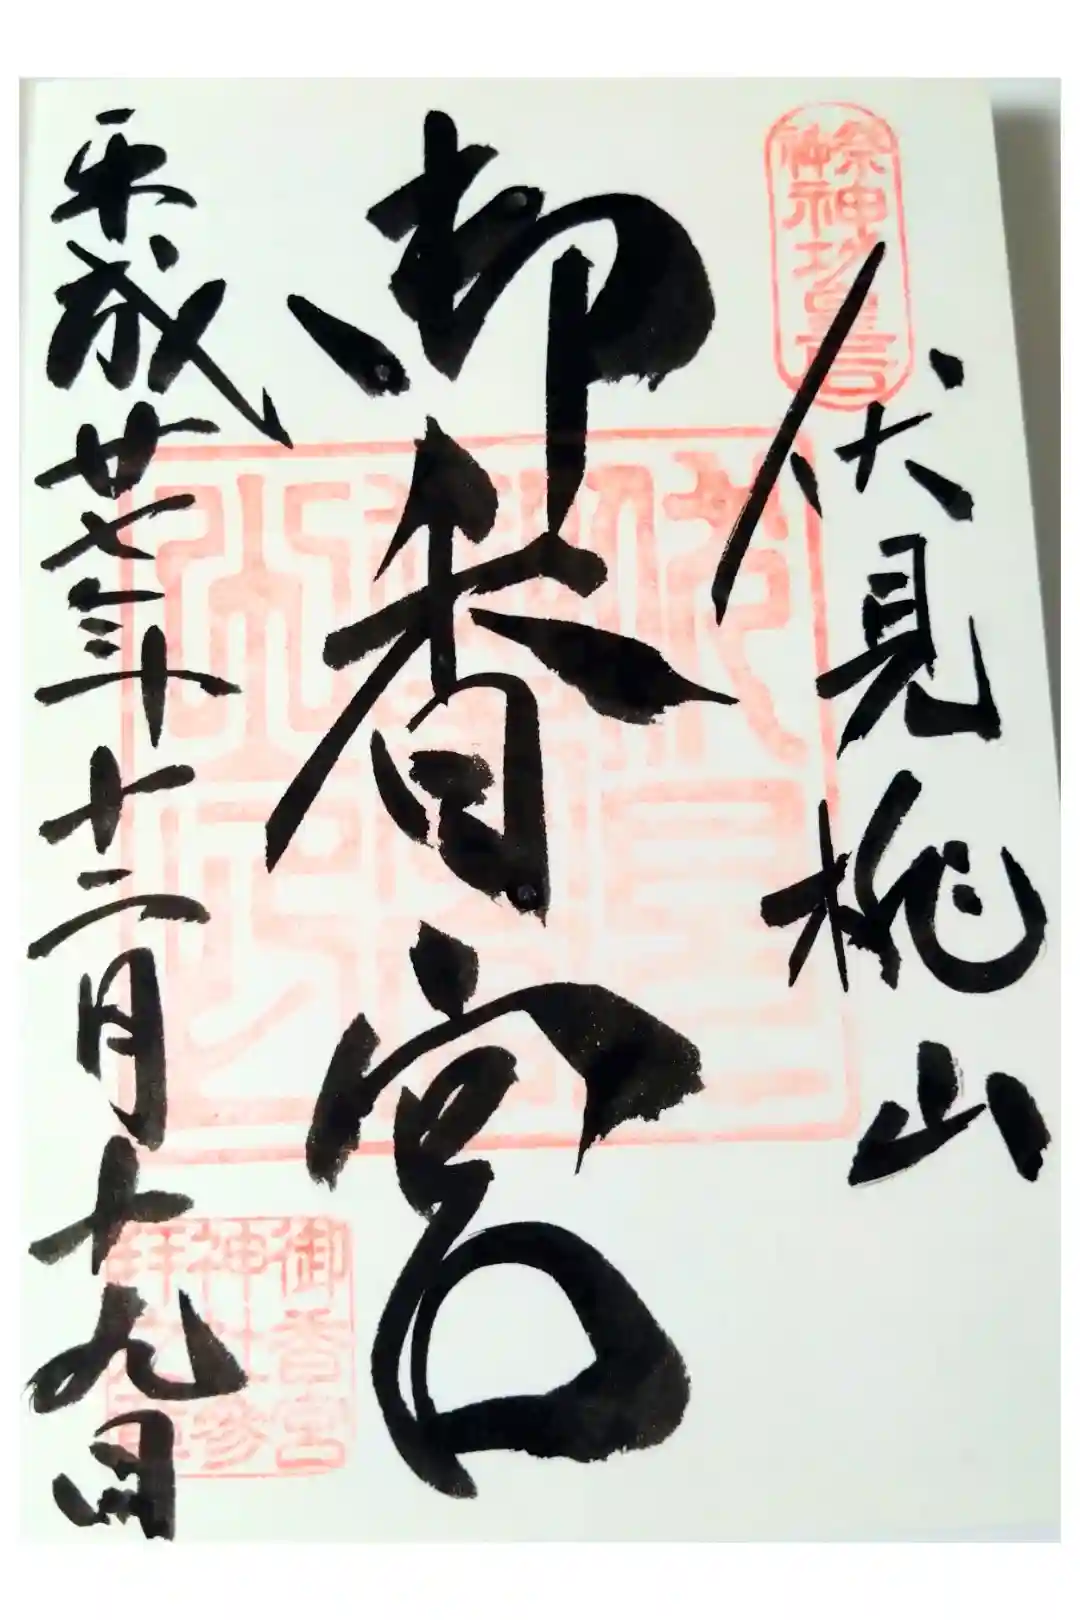 祭神神功皇后
伏見桃山
御香宮
御香宮
神社参
平成廿七年十二月十九日